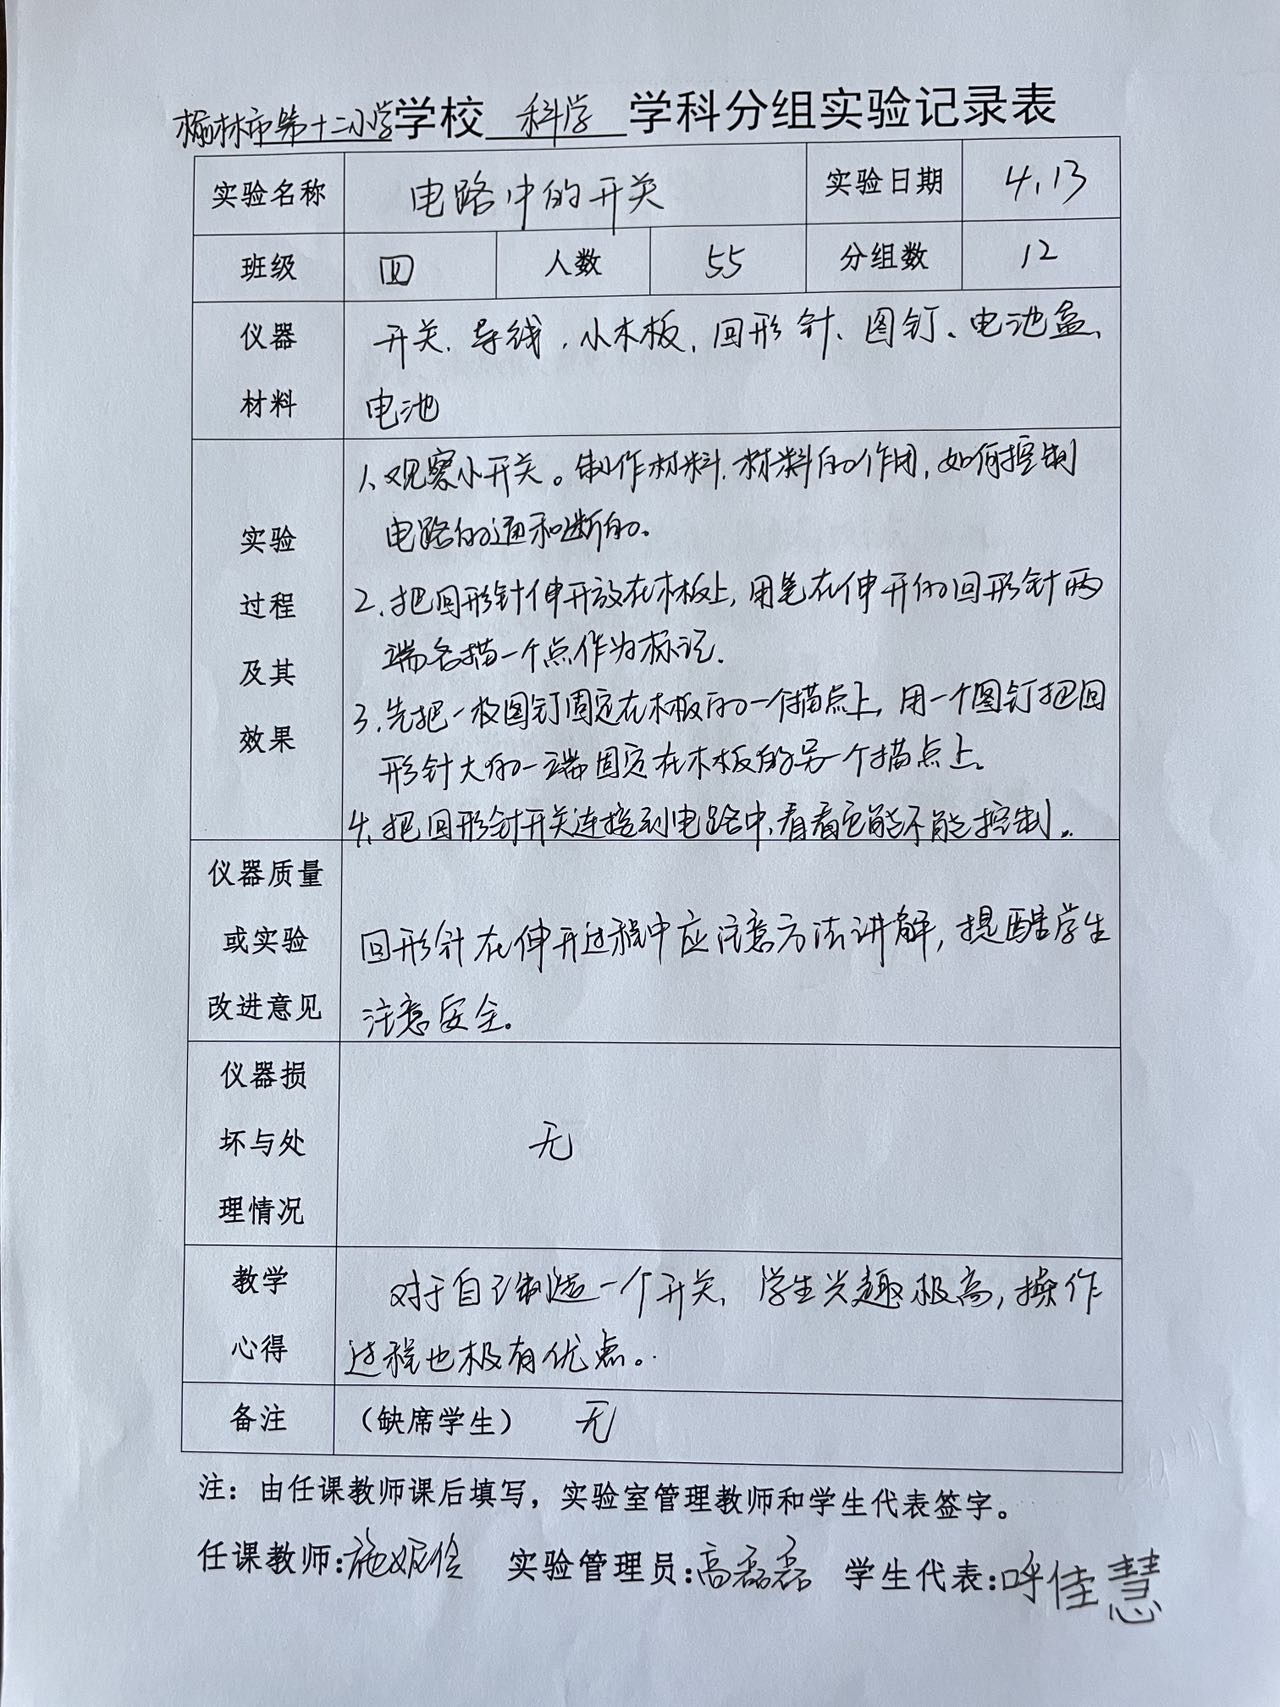 榆林市第十二小学学校 科学 学科分组实验记录表
实验名称 电路中的开关 实验日期 4.13
班级 四 人数 55 分组数 12
仪器 开关、导线、小木板、回形针、图钉、电池盒、
材料 电池
1、观察小开关。制作材料、材料的作用,如何控制
电路的通和断的。
实验
过程
及其
效果
2、把回形针伸开放在木板上,用笔在伸开的回形针两
端各描一个点作为标记.
3、先把一枚图钉固定在木板的一个描点上,用一个图钉把回
形针大的一端固定在木板的另一个描点上。
4、把回形针开关连接到电路中,看看它能不能控制。
仪器质量
或实验
改进意见
回形针在伸开过程中应注意方法讲解,提醒学生
注意安全。
仪器损
坏与处
理情况
无
教学
心得
对于自己制造一个开关,学生兴趣极高,操作
过程也极有优点。
备注 (缺席学生) 无
注:由任课教师课后填写,实验室管理教师和学生代表签字。
任课教师:施妮 实验管理员:高磊磊 学生代表:呼佳慧